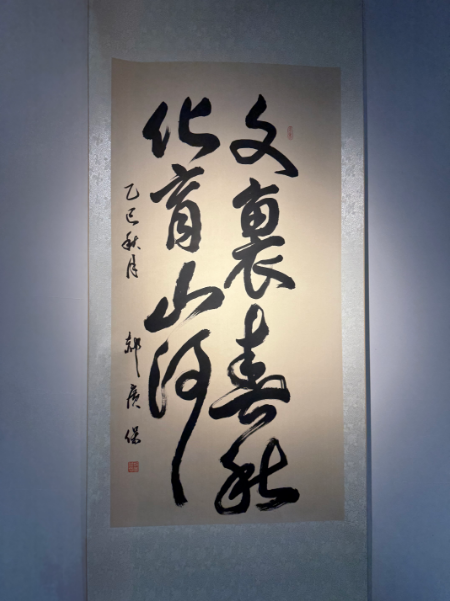 文裏春秋
化育山河
乙巳秋月 郝广保